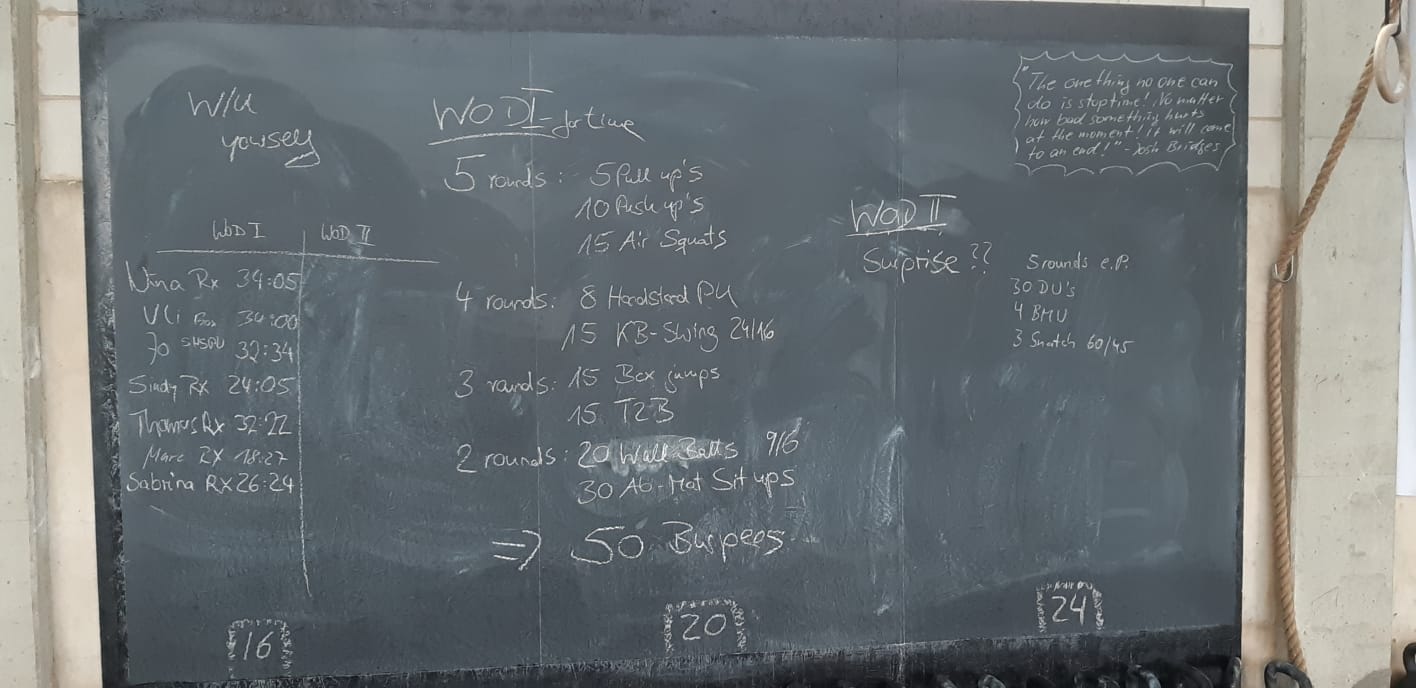 W/u
yourself
WOD I WOD II
Nina Rx 34:05
Uli Box 34:00
Jo SHSPU 32:34
Sindy RX 24:05
Thomas Rx 32:22
Marc RX 18:27
Sabrina RX 26:24
WOD I - for time
5 rounds: 5 Pull up's
10 Push up's
15 Air Squats
4 rounds: 8 Handstand PU
15 KB-Swing 24/16
3 rounds: 15 Box jumps
15 T2B
2 rounds: 20 Wall-Balls 9/6
30 Ab-Mat Sit ups
⇒ 50 Burpees
WOD II
Surprise??
5 rounds e.P.
30 DU's
4 BMU
3 Snatch 60/45
"The one thing no one can
do is stop time! No matter
how bad something hurts
at the moment! it will come
to an end!" - Josh Bridges
16
20
24